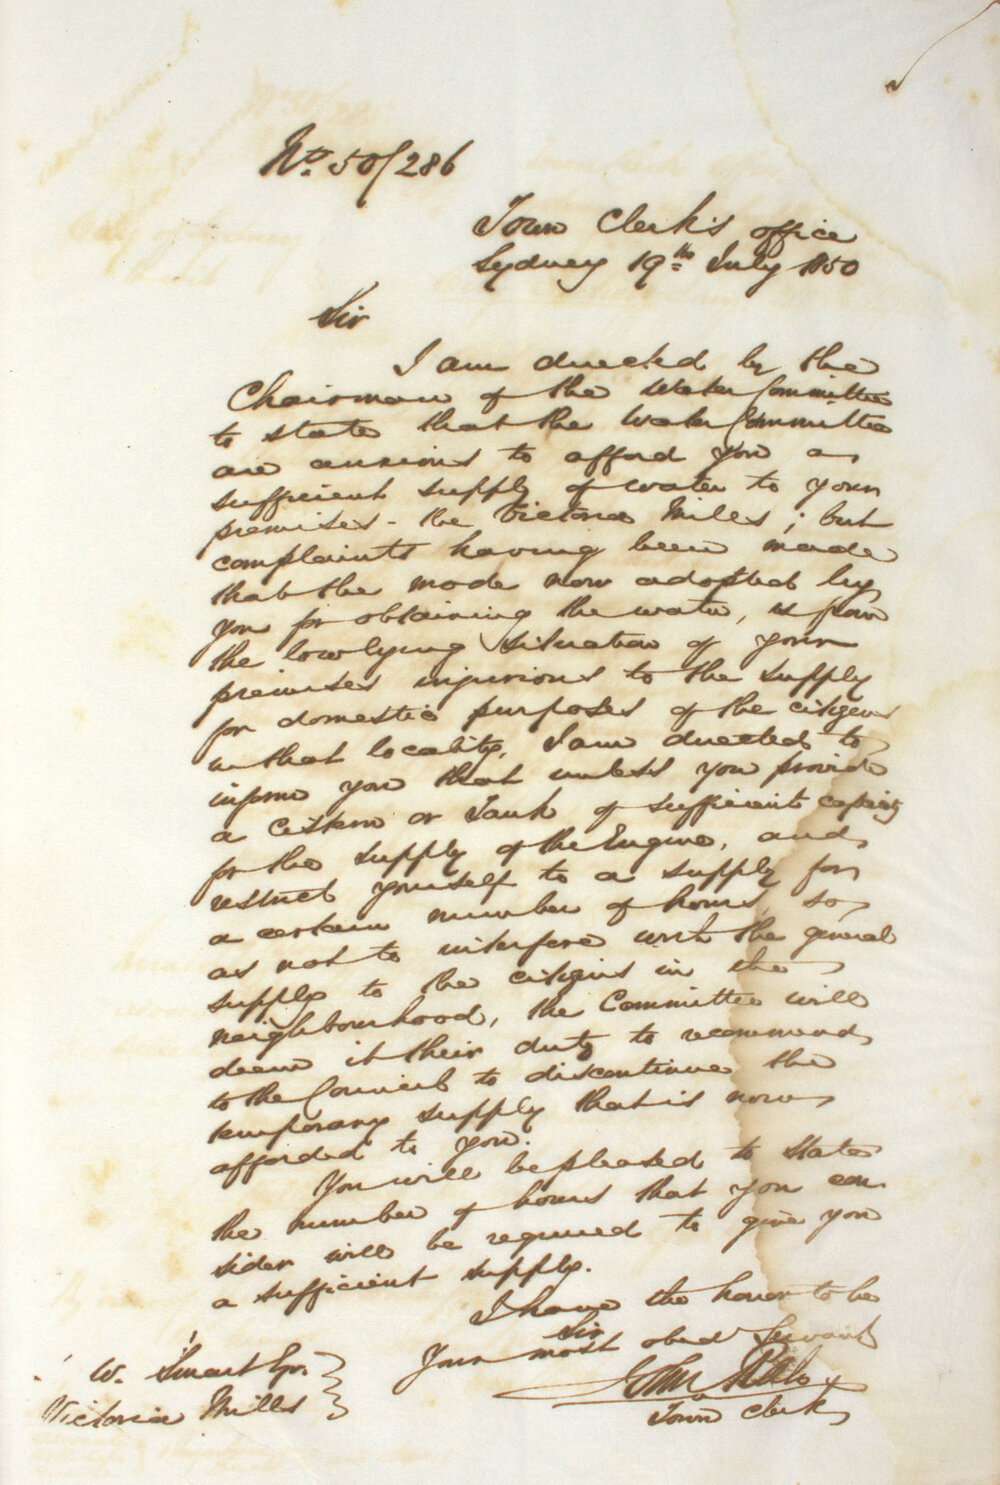 No. 50/286
Town Clerk's office
Sydney 19th July 1850
Sir
I am directed by the
Chairman of the Water Committee
to state that the Water Committee
are anxious to afford you a
sufficient supply of water to your
premises - the Victoria Mills; but
complaints having been made
that the mode now adopted by
you for obtaining the water, is from
the lowlying situation of your
premises injurious to the supply
for domestic purposes of the citizens
in that locality, I am directed to
inform you that unless you provide
a cistern or Tank of sufficient capacity
for the supply of the Engine, and
restrict yourself to a supply for
a certain number of hours, so
as not to interfere with the general
supply to the citizens in the
neighbourhood, the Committee will
deem it their duty to recommend
to the Council to discontinue the
temporary supply that is now
afforded to you.
You will be pleased to state
the number of hours that you con
sider will be required to give you
a sufficient supply.
I have the honor to be
Sir
Your most obed Servant
John
Town Clerk
W. Smart Esqr.
Victoria Mills